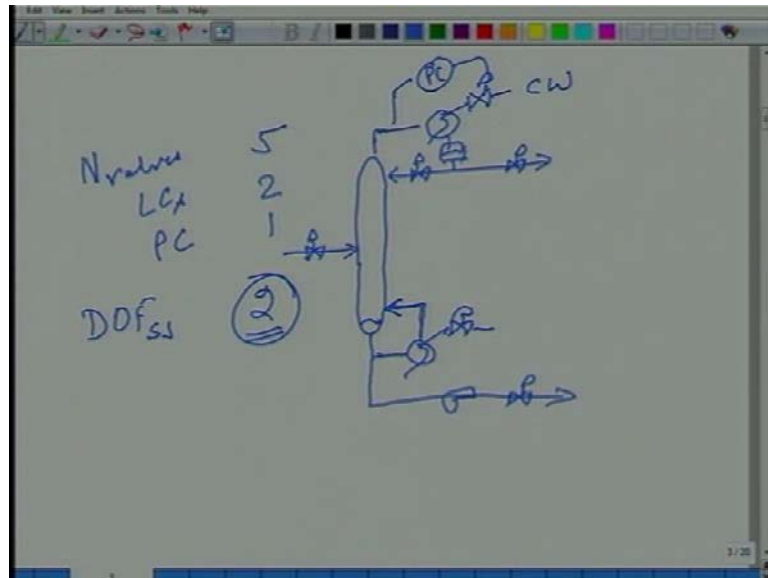 Edit View Insert Actions Tools Help
PC
CW
Nvalves 5
LCs 2
PC 1
DOFss 2
3/20